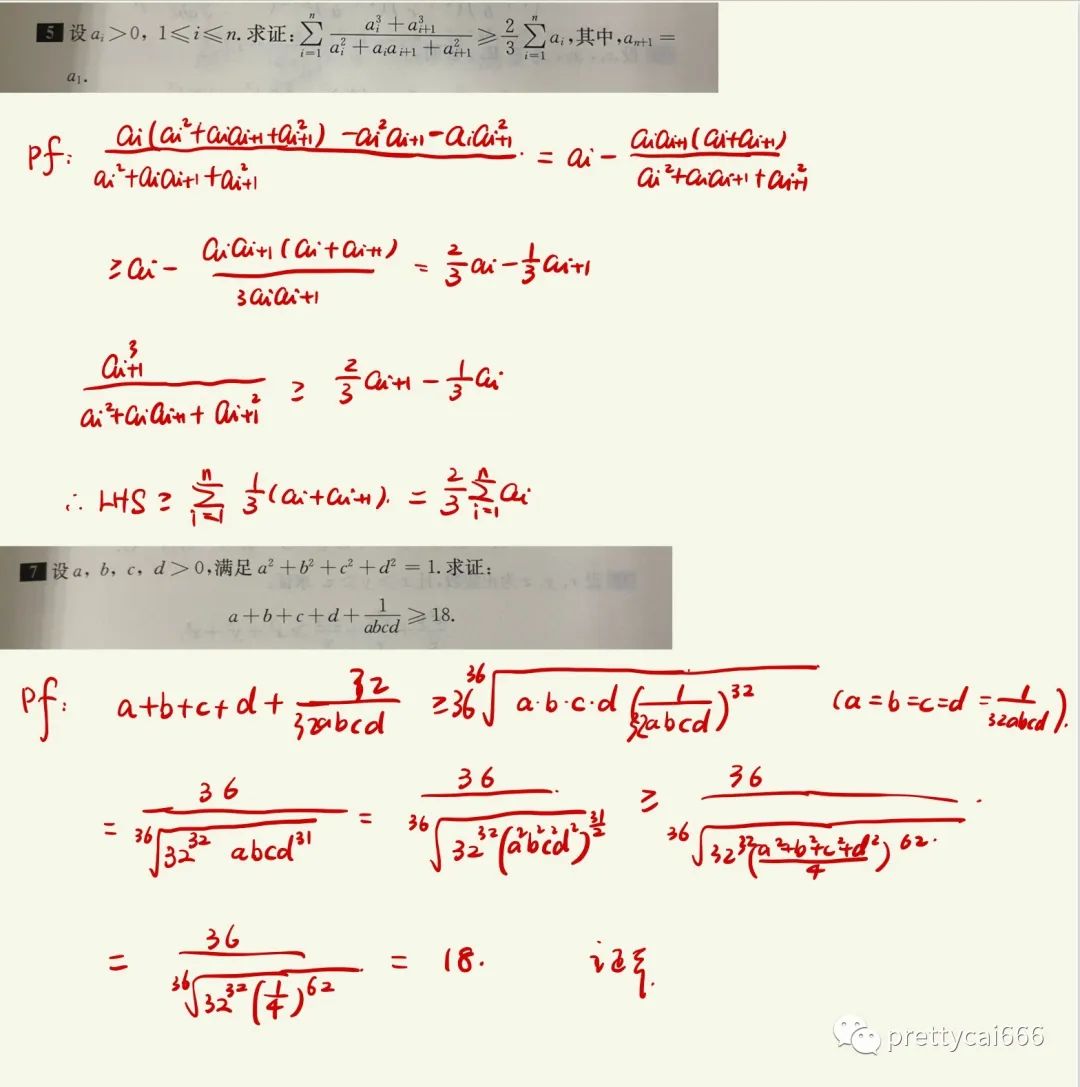 5 设 aᵢ>0, 1≤i≤n. 求证: ∑_{i=1}^{n} (aᵢ³+aᵢ₊₁³)/(aᵢ²+aᵢaᵢ₊₁+aᵢ₊₁²) ≥ 2/3 ∑_{i=1}^{n} aᵢ, 其中, aₙ₊₁=
a₁.
Pf: (aᵢ(aᵢ²+aᵢaᵢ₊₁+aᵢ₊₁²) -aᵢ²aᵢ₊₁-aᵢaᵢ₊₁²)/(aᵢ²+aᵢaᵢ₊₁+aᵢ₊₁²) = aᵢ - (aᵢaᵢ₊₁(aᵢ+aᵢ₊₁))/(aᵢ²+aᵢaᵢ₊₁+aᵢ₊₁²)
≥ aᵢ - (aᵢaᵢ₊₁(aᵢ+aᵢ₊₁))/(3aᵢaᵢ₊₁) = 2/3 aᵢ - 1/3 aᵢ₊₁
aᵢ₊₁³/(aᵢ²+aᵢaᵢ₊₁+aᵢ₊₁²) ≥ 2/3 aᵢ₊₁ - 1/3 aᵢ
∴ LHS ≥ ∑_{i=1}^{n} 1/3 (aᵢ+aᵢ₊₁). = 2/3 ∑_{i=1}^{n} aᵢ
7 设 a, b, c, d>0, 满足 a²+b²+c²+d²=1. 求证:
a+b+c+d+1/abcd ≥18.
Pf: a+b+c+d+ 32/(32abcd) ≥ 36 ³⁶√(a·b·c·d (1/(32abcd))³²) (a=b=c=d=1/(32abcd)).
= 36/³⁶√(32³² abcd³¹) = 36/³⁶√(32³²(a²b²c²d²)^(31/2)) ≥ 36/³⁶√(32³²((a²+b²+c²+d²)/4)⁶²).
= 36/³⁶√(32³²(1/4)⁶²) = 18. 证毕.
prettycai666